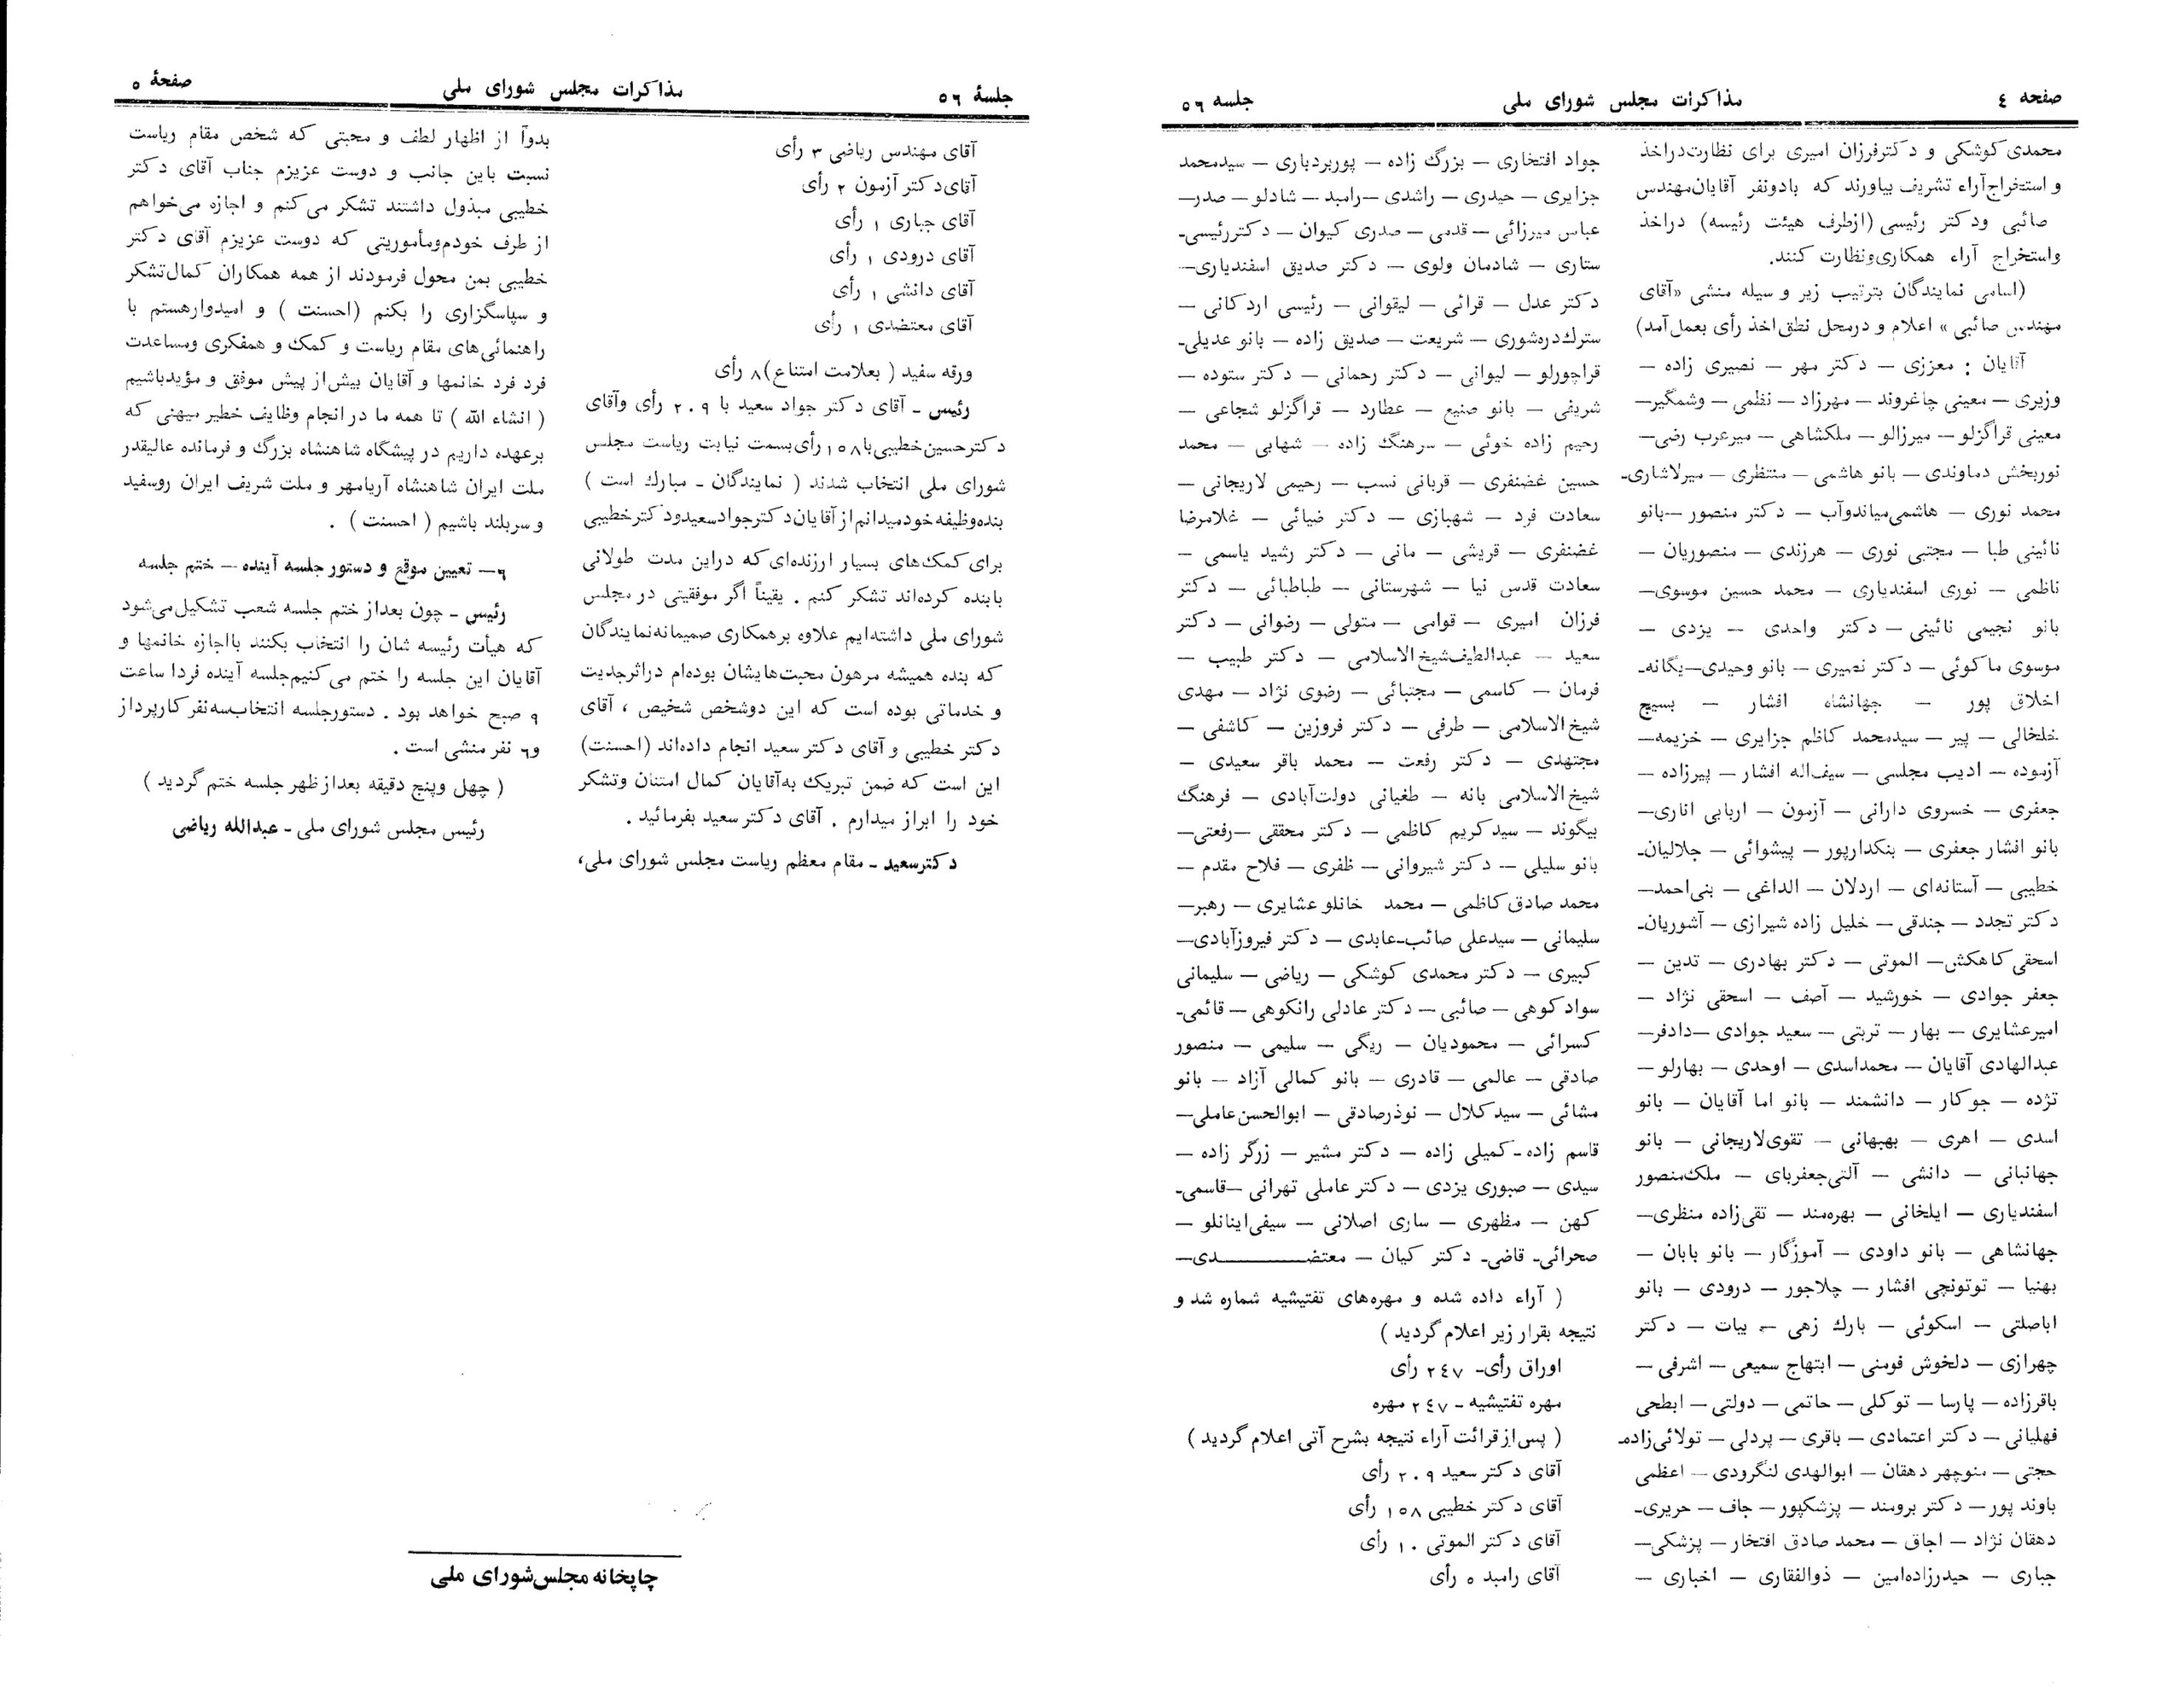 صفحه ٤
مذاکرات مجلس شورای ملی
جلسه ٥٦
محمدی کوشکی و دکترفرزان امیری برای نظارت‌دراخذ
و استخراج‌آراء تشریف بیاورند که بادونفر آقایان‌مهندس
صائبی ودکتر رئیسی (ازطرف هیئت رئیسه) دراخذ
واستخراج آراء همکاری‌ونظارت کنند.
(اسامی نمایندگان بترتیب زیر و سیله منشی «آقای
مهندس صائبی» اعلام و درمحل نطق‌اخذ رأی بعمل‌آمد)
آقایان : معززی – دکتر مهر – نصیری زاده –
وزیری – معینی چاغروند – مهرزاد – نظمی – وشمگیر–
معینی قراگزلو – میرزالو – ملکشاهی – میرعرب رضی–
نوربخش دماوندی – بانو هاشمی – منتظری – میرلاشاری-
محمد نوری – هاشمی‌میاندوآب – دکتر منصور –بانو
نائینی طبا – مجتبی نوری – هرزندی – منصوریان –
ناظمی – نوری اسفندیاری – محمد حسین موسوی–
بانو نجیمی نائینی – دکتر واحدی – یزدی –
موسوی ماکوئی – دکتر نصیری – بانو وحیدی–یگانه-
اخلاق پور – جهانشاه افشار – بسیج
خلخالی – پیر – سیدمحمد کاظم جزایری – خزیمه–
آزموده – ادیب مجلسی – سیف‌اله افشار – پیرزاده –
جعفری – خسروی دارانی – آزمون – اربابی اناری–
بانو افشار جعفری – بنکدارپور – پیشوائی – جلالیان-
خطیبی – آستانه‌ای – اردلان – الداغی – بنی‌احمد–
دکتر تجدد – جندقی – خلیل زاده شیرازی – آشوریان-
اسحقی کاهکش– الموتی – دکتر بهادری – تدین –
جعفر جوادی – خورشید – آصف – اسحقی نژاد –
امیرعشایری – بهار – تربتی – سعید جوادی –دادفر–
عبدالهادی آقایان – محمداسدی – اوحدی – بهارلو –
تژده – جوکار – دانشمند – بانو اما آقایان – بانو
اسدی – اهری – بهبهانی – تقوی‌لاریجانی – بانو
جهانبانی – دانشی – آلتی‌جعفربای – ملک‌منصور
اسفندیاری – ایلخانی – بهره‌مند – تقی‌زاده منظری–
جهانشاهی – بانو داودی – آموزگار – بانو بابان –
بهنیا – توتونچی افشار – چلاجور – درودی – بانو
اباصلتی – اسکوئی – بارك زهی – بیات – دکتر
چهرازی – دلخوش فومنی – ابتهاج سمیعی – اشرفی –
باقرزاده – پارسا – توکلی – حاتمی – دولتی – ابطحی
فهلیانی – دکتر اعتمادی – باقری – پردلی – تولائی‌زاده-
حجتی – منوچهر دهقان – ابوالهدی لنگرودی – اعظمی
باوند پور – دکتر برومند – پزشکپور – جاف – حریری-
دهقان نژاد – اجاق – محمد صادق افتخار – پزشکی–
جباری – حیدرزاده‌امین – ذوالفقاری – اخباری –
جواد افتخاری – بزرگ زاده – پوربردباری – سیدمحمد
جزایری – حیدری – راشدی –رامبد – شادلو – صدر–
عباس میرزائی – قدمی – صدری کیوان – دکتررئیسی-
ستاری – شادمان ولوی – دکتر صدیق اسفندیاری–
دکتر عدل – قرائی – لیقوانی – رئیسی اردکانی –
سترك‌دره‌شوری – شریعت – صدیق زاده – بانو عدیلی-
قراچورلو – لیوانی – دکتر رحمانی – دکتر ستوده –
شریفی – بانو صنیع – عطارد – قراگزلو شجاعی –
رحیم زاده خوئی – سرهنگ زاده – شهابی – محمد
حسین غضنفری – قربانی نسب – رحیمی لاریجانی –
سعادت فرد – شهبازی – دکتر ضیائی – غلامرضا
غضنفری – قریشی – مانی – دکتر رشید یاسمی –
سعادت قدس نیا – شهرستانی – طباطبائی – دکتر
فرزان امیری – قوامی – متولی – رضوانی – دکتر
سعید – عبدالطیف‌شیخ‌الاسلامی – دکتر طبیب –
فرمان – کاسمی – مجتبائی – رضوی نژاد – مهدی
شیخ‌الاسلامی – طرفی – دکتر فروزین – کاشفی –
مجتهدی – دکتر رفعت – محمد باقر سعیدی –
شیخ‌الاسلامی بانه – طغیانی دولت‌آبادی – فرهنگ
بیگوند – سیدکریم کاظمی – دکتر محققی –رفعتی–
بانو سلیلی – دکتر شیروانی – ظفری – فلاح مقدم –
محمد صادق‌کاظمی – محمد خانلو عشایری – رهبر–
سلیمانی – سیدعلی صائب-عابدی – دکتر فیروزآبادی–
کبیری – دکتر محمدی کوشکی – ریاضی – سلیمانی
سوادکوهی – صائبی – دکتر عادلی رانکوهی – قائمی-
کسرائی – محمودیان – ریگی – سلیمی – منصور
صادقی – عالمی – قادری – بانو کمالی آزاد – بانو
مشائی – سیدکلال – نوذرصادقی – ابوالحسن‌عاملی–
قاسم زاده-کمیلی زاده – دکتر مشیر – زرگر زاده –
سیدی – صبوری یزدی – دکتر عاملی تهرانی –قاسمی-
کهن – مظهری – ساری اصلانی – سیفی‌اینانلو –
صحرائی- قاضی- دکتر کیان – معتضــــــدی–
( آراء داده شده و مهره‌های تفتیشیه شماره شد و
نتیجه بقرار زیر اعلام گردید )
اوراق رأی- ٢٤٧ رأی
مهره تفتیشیه - ٢٤٧ مهره
( پس‌ازقرائت آراء نتیجه بشرح آتی اعلام گردید )
آقای دکتر سعید ٢٠٩ رأی
آقای دکتر خطیبی ١٥٨ رأی
آقای دکتر الموتی ١٠ رأی
آقای رامبد ٥ رأی
جلسهٔ ٥٦
مذاکرات مجلس شورای ملی
صفحهٔ ٥
آقای مهندس ریاضی ٣ رأی
آقای‌دکتر آزمون ٢ رأی
آقای جباری ١ رأی
آقای درودی ١ رأی
آقای دانشی ١ رأی
آقای معتضدی ١ رأی
ورقه سفید ( بعلامت امتناع)٨ رأی
رئیس - آقای دکتر جواد سعید با ٢٠٩ رأی وآقای
دکترحسین‌خطیبی‌با١٥٨رأی‌بسمت نیابت ریاست مجلس
شورای ملی انتخاب شدند ( نمایندگان - مبارك است )
بنده‌وظیفه خودمیدانم‌ازآقایان‌دکترجوادسعیدودکترخطیبی
برای کمک‌های بسیار ارزنده‌ای‌که دراین مدت طولانی
بابنده کرده‌اند تشکر کنم . یقیناً اگر موفقیتی در مجلس
شورای ملی داشته‌ایم علاوه برهمکاری صمیمانه‌نمایندگان
که بنده همیشه مرهون محبت‌هایشان بوده‌ام دراثرجدیت
و خدماتی بوده است که این دوشخص شخیص ، آقای
دکتر خطیبی و آقای دکتر سعید انجام داده‌اند (احسنت)
این است که ضمن تبریك به‌آقایان کمال امتنان وتشکر
خود را ابراز میدارم . آقای دکتر سعید بفرمائید .
دکترسعید - مقام معظم ریاست مجلس شورای ملی،
بدوآ از اظهار لطف و محبتی که شخص مقام ریاست
نسبت باین جانب و دوست عزیزم جناب آقای دکتر
خطیبی مبذول داشتند تشکر می‌کنم و اجازه می‌خواهم
از طرف خودم‌ومأموریتی که دوست عزیزم آقای دکتر
خطیبی بمن محول فرمودند از همه همکاران کمال‌تشکر
و سپاسگزاری را بکنم (احسنت ) و امیدوارهستم با
راهنمائی‌های مقام ریاست و کمك و همفکری ومساعدت
فرد فرد خانمها و آقایان بیش‌از پیش موفق و مؤیدباشیم
( انشاء الله ) تا همه ما در انجام وظایف خطیر میهنی که
برعهده داریم در پیشگاه شاهنشاه بزرگ و فرمانده عالیقدر
ملت ایران شاهنشاه آریامهر و ملت شریف ایران روسفید
و سربلند باشیم ( احسنت ) .
٩– تعیین موقع و دستور جلسه آینده – ختم جلسه
رئیس - چون بعداز ختم جلسه شعب تشکیل‌می‌شود
که هیأت رئیسه شان را انتخاب بکنند بااجازه خانمها و
آقایان این جلسه را ختم می‌کنیم‌جلسه آینده فردا ساعت
٩ صبح خواهد بود . دستورجلسه انتخاب‌سه‌نفر کارپرداز
و٦ نفر منشی است .
( چهل وپنج دقیقه بعداز ظهر جلسه ختم گردید )
رئیس مجلس شورای ملی - عبدالله ریاضی
چاپخانه مجلس‌شورای ملی